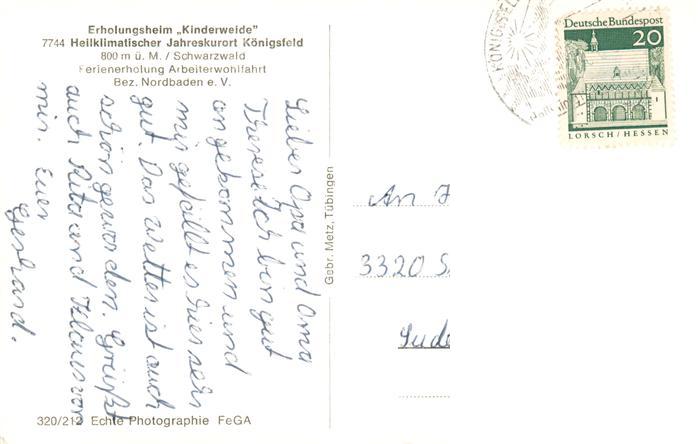 Erholungsheim „Kinderweide"
7744 Heilklimatischer Jahreskurort Königsfeld
800 m ü. M. / Schwarzwald
Ferienerholung Arbeiterwohlfahrt
Bez. Nordbaden e. V.
Lieber Opa und Oma
Therese Ich bin gut
angekommen und
mir gefällt es hier sehr
gut. Das Wetter ist auch
schön geworden. Grüßt
auch Rita und Klaus von
mir. Euer
Gerhard.
320/212 Echte Photographie FeGA
Gebr. Metz, Tübingen
KÖNIGSFELD
Deutsche Bundespost
20
LORSCH / HESSEN
An
3320 S
Sude